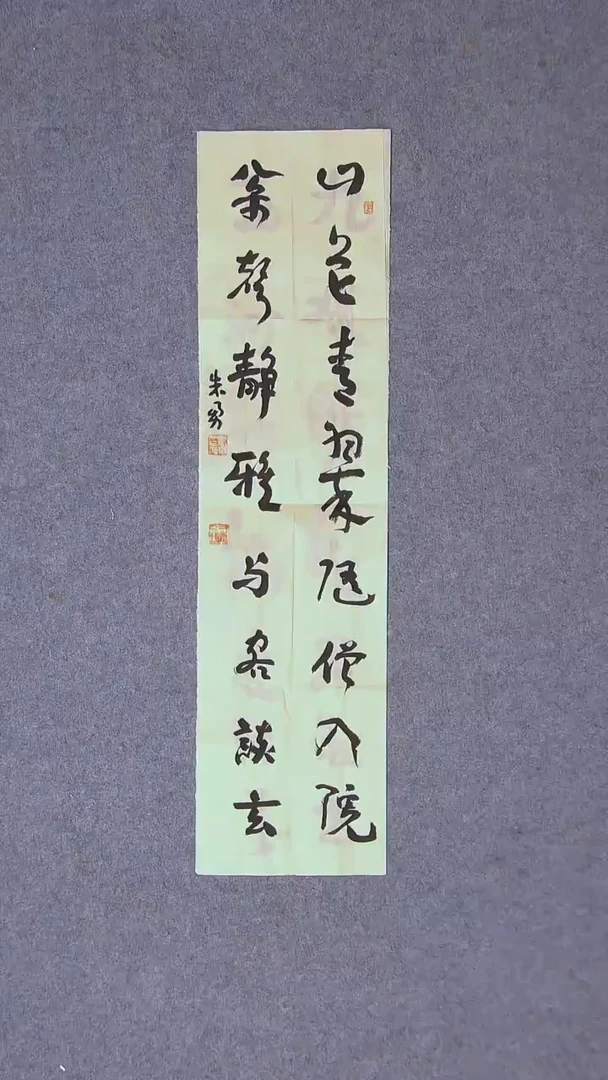 山色青翠随僧入院
松聲静雅与客談玄
朱勇